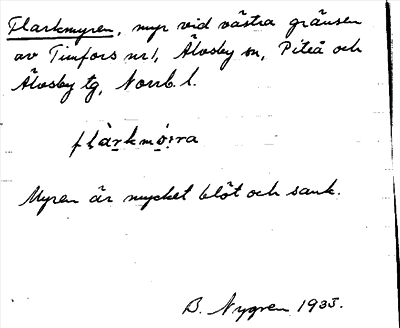 Flarkmyren, myr vid västra gränsen
av Timfors nr 1, Älvsby sn, Piteå och
Älvsby tg, Norrb. l.
flàrkmó:rra
Myren är mycket blöt och sank.
B. Nygren 1933.